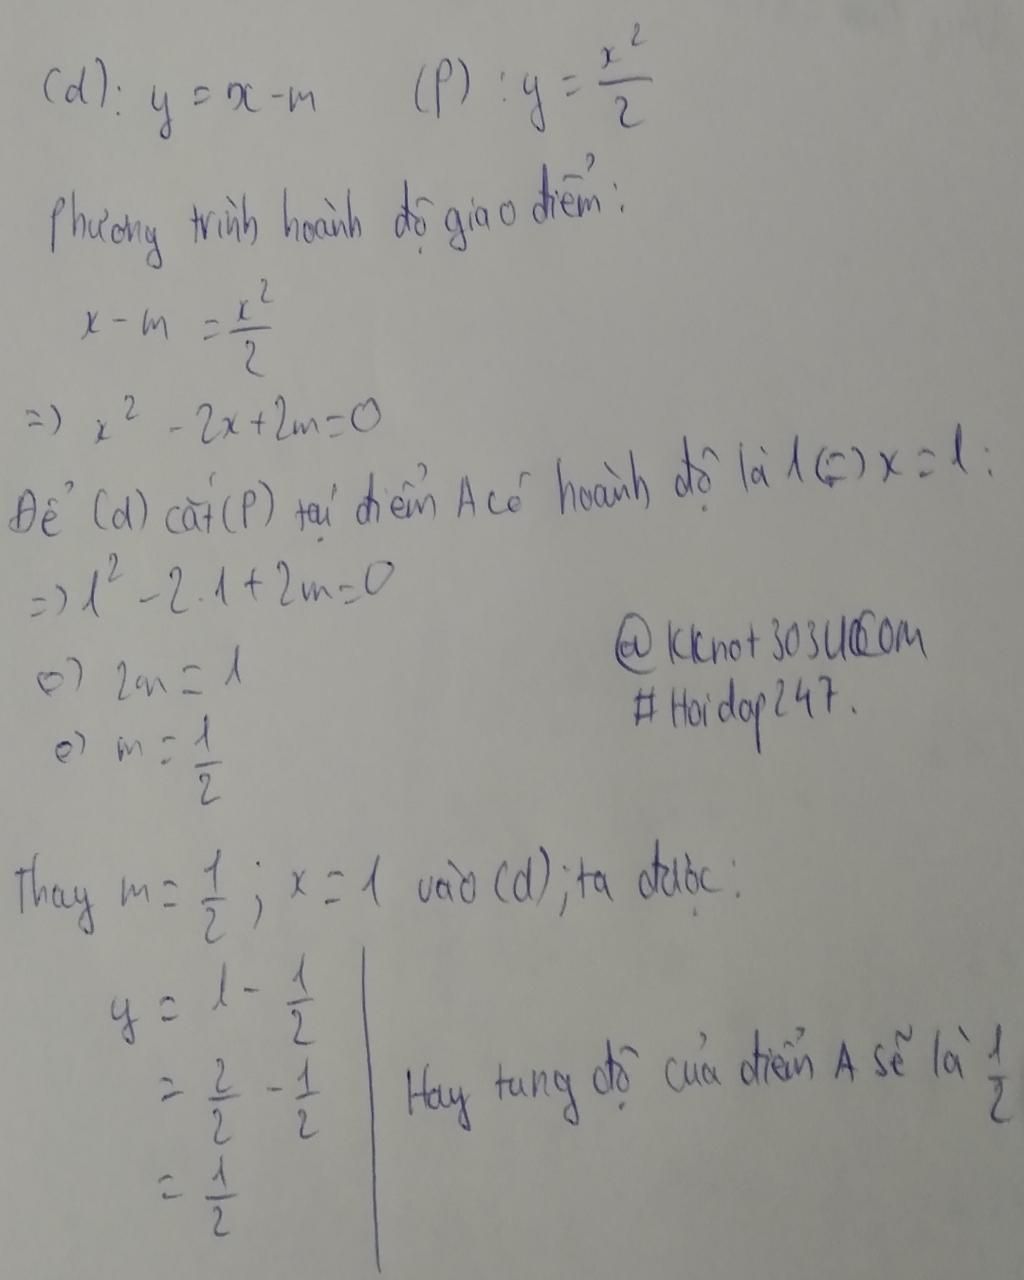 (d): y = x - m (P) : y = x²/2
Phương trình hoành độ giao điểm:
x - m = x²/2
=> x² - 2x + 2m = 0
Để (d) cắt (P) tại điểm A có hoành độ là 1 (=) x = 1 :
=> 1² - 2.1 + 2m = 0
(=) 2m = 1
(=) m = 1/2
@KKnot303
#Hoidap247.
Thay m = 1/2 ; x = 1 vào (d); ta được:
y = 1 - 1/2
= 2/2 - 1/2
= 1/2
Hay tung độ của điểm A sẽ là 1/2